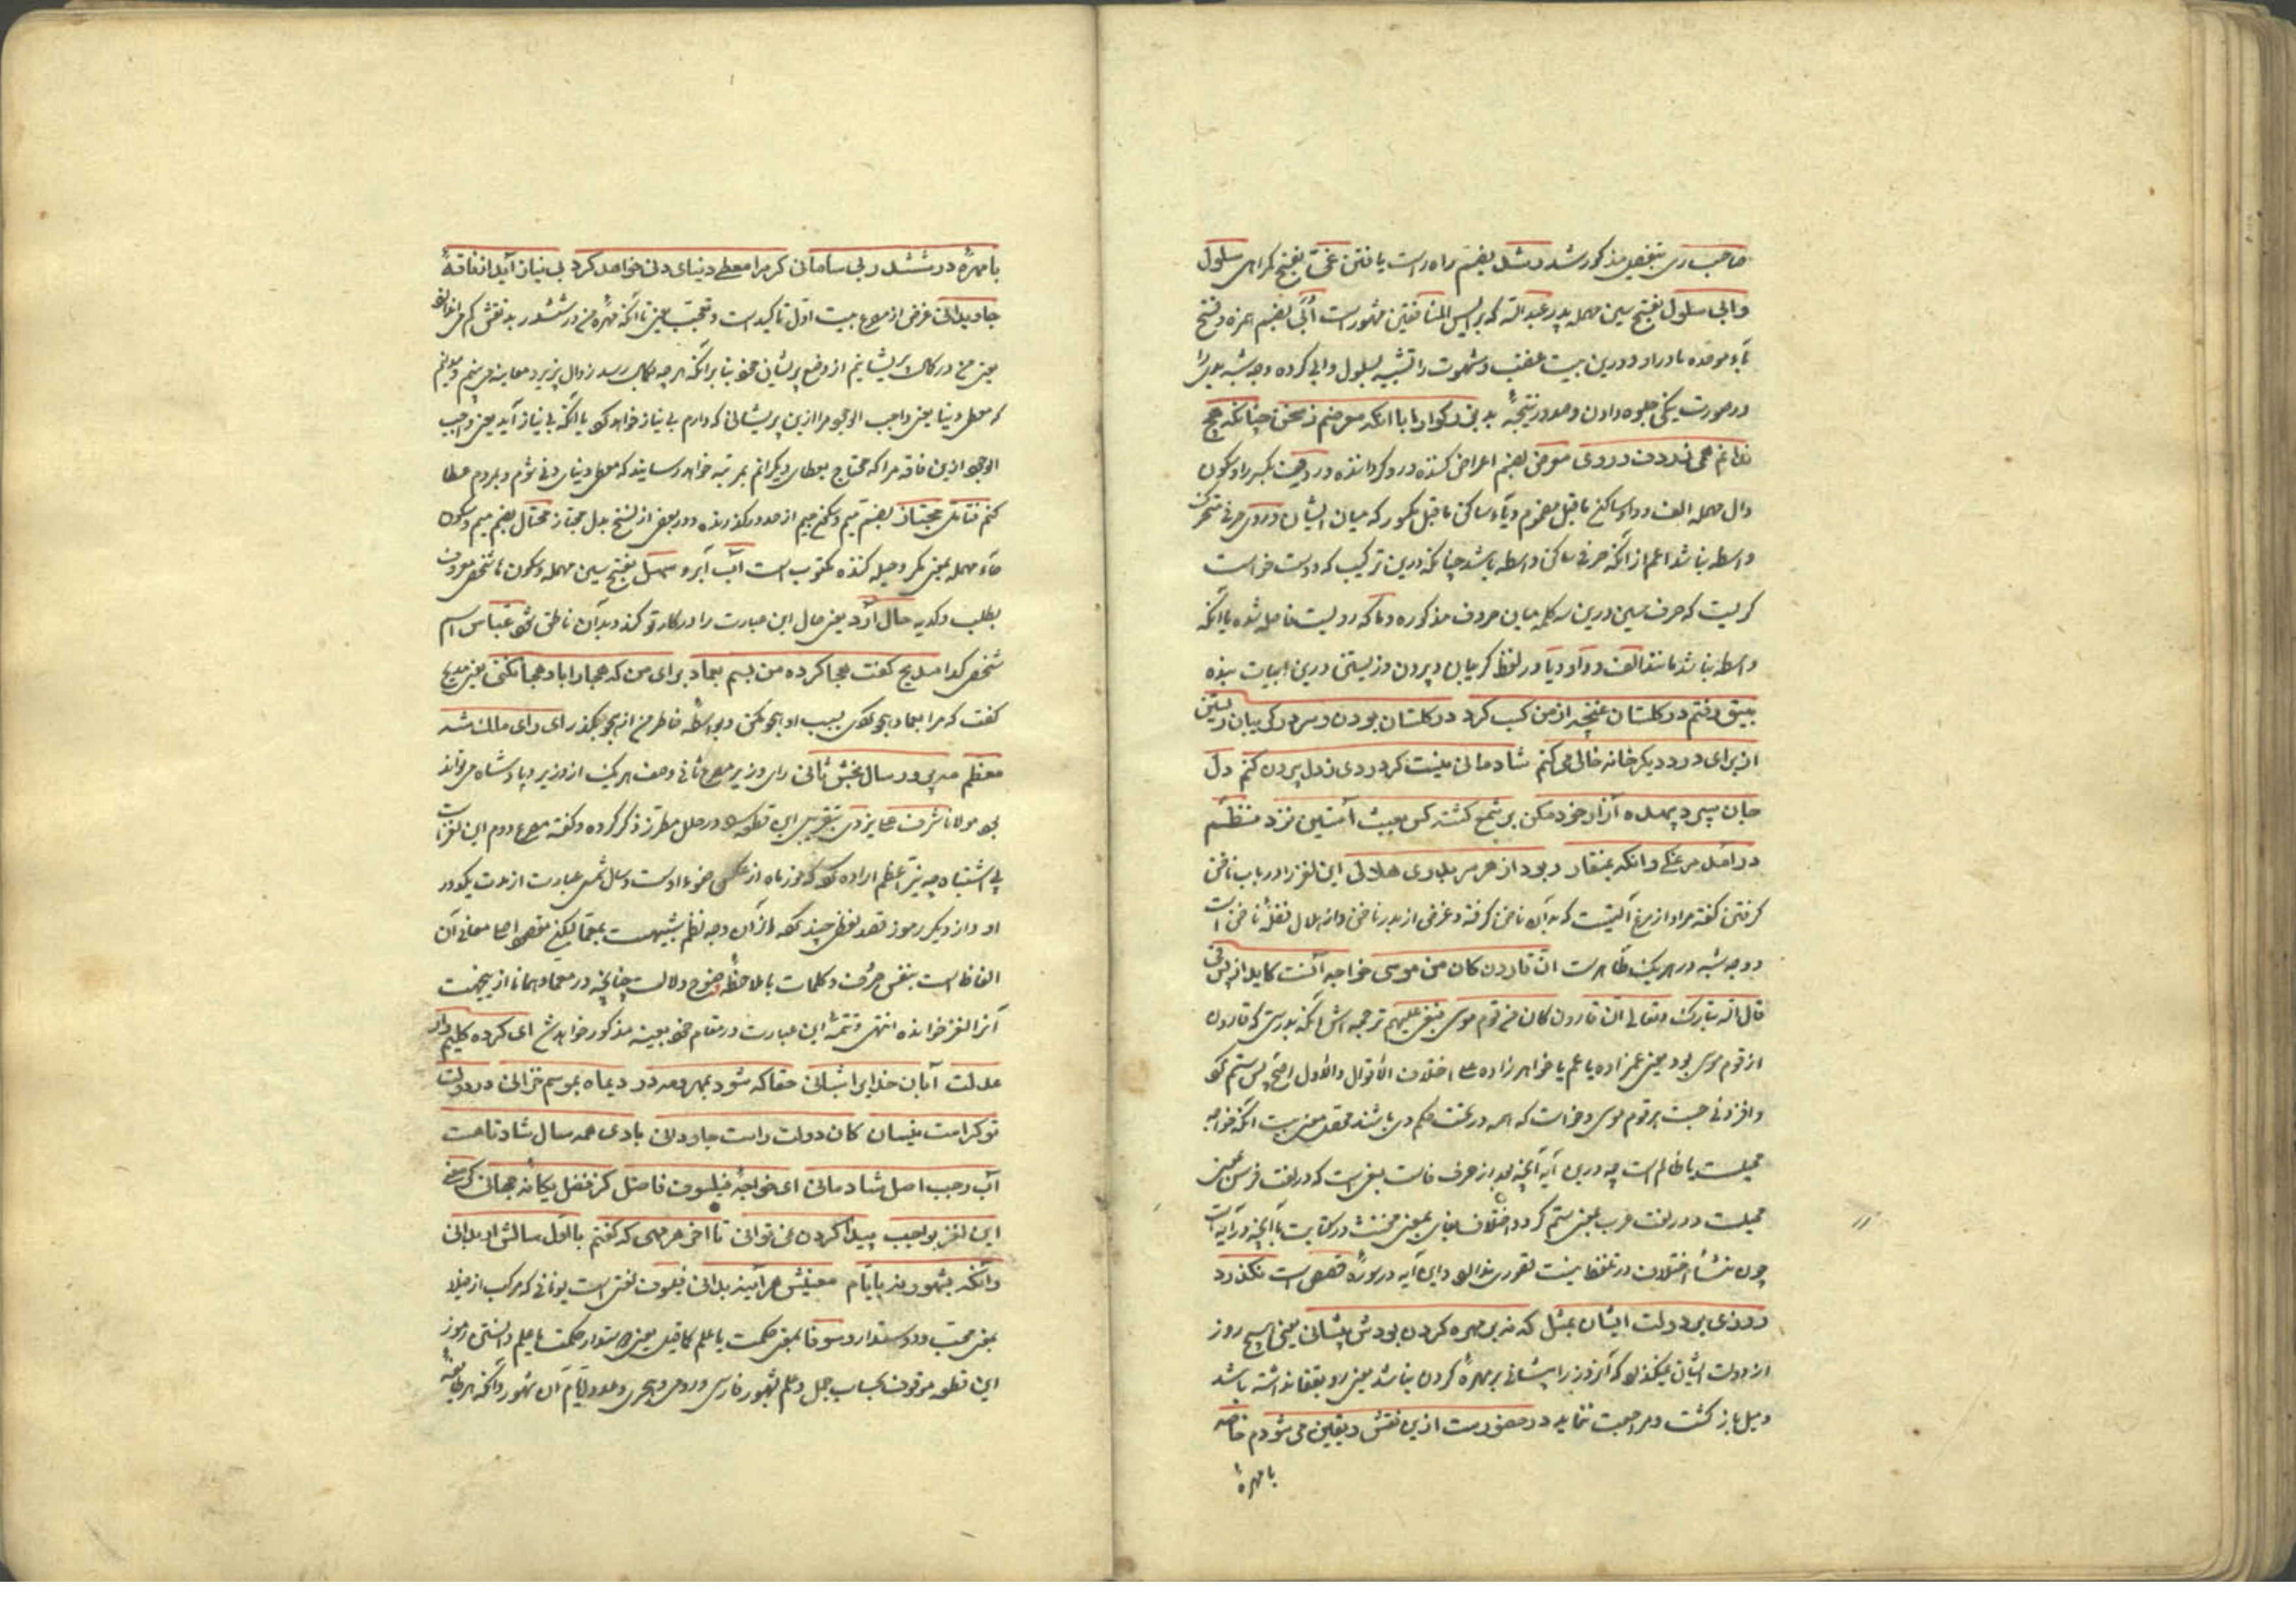 صاحب ری بتفصیل مذکور شد رشد بضم راه راست یافتن غی بفتح گمراهی سلول
وابی سلول بفتح سین مهمله پدر عبدالله که برئیس المنافقین مشهور است اُبَی بضم همزه و فتح
باء موحده مادر او و درین بیت عفت و شهوت را تشبیه بسلول و ابی کرده وجه شبه
در صورت نیکی جلوه دادن و صدور نتیجهٔ بد بزرگوارا با آنکه معرضم ز سخن چنانکه هیچ
ندانم همی ز ردف و روی معرض بضم اعراض کننده و رو گرداننده ردف بکسر را و سکون
دال مهمله الف و واو ساکن ماقبل مضموم و یاء ساکن ماقبل مکسور که میان ایشان و روی حرفی متحرک
واسطه نباشد اعم از آنکه حرفی ساکن واسطه باشد چنانکه درین ترکیب که دوست خواست
گریست که حرف سین درین سه کلمه میان حروف مذکوره و تا که رویست فاصله شده یا آنکه
واسطه نباشد مانند الف و واو و یا در لفظ گریبان و بیرون و زیستن درین ابیات بنده
بیتو رفتم در گلستان غنچه از من کسب کرد در گلستان بودن و سر در گریبان زیستن
از برای درد دیگر خانه خالی می کنم شادمانی نیست گر دردی ز دل بیرون کنم دل
جان سپرد پهلوه آزار خود مکن بر شمع کشته کس بعبث آستین نزد منظم
در اصل مرغکی وانکه بمنقار ربود از هر سر بدری هلالی این لغز را در باب ناخن
گرفتن گفته مراد از مرغ آلتیست که بدان ناخن گرفته و غرض از بدر ناخن و از هلال فضلهٔ ناخن است
و وجه شبه در هر یک ظاهر است ان قارون کان من موسی خواجه آنست کاید از پس فی
قال الله تبارک و تعالی ان قارون کان من قوم موسی فبغی علیهم ترجمه اش آنکه بدرستی که قارون
از قوم موسی بود یعنی عمزاده یا عم یا خواهرزاده علی اختلاف الاقوال والاول اصح پس ستم کرد
و افزونی جست بر قوم موسی و خواست که همه در تحت حکم وی باشند مقصود بیت آنکه خواجه
است یا ظالم است چه درین آیه آنچه بعد از حرف فاست بغی است که در لغت فرس بمعنی
است و در لغت عرب بمعنی ستم کردن و اختلاف بمعنی مخنث در کتابت با آنچه در آیه است
چون منشاء اختلاف در تلفظ نیست قصوری ندارد و این آیه در سورهٔ قصص است نگذرد
روزی بر دولت ایشان بمثل که نه بر مهره گردن بودش پیشانی یعنی هیچ روز
از دولت ایشان نمیگذرد که آن روز را پیشانی بر مهرهٔ گردن نباشد یعنی رو بقفا نداشته باشد
و میل بازگشت و مراجعت ننماید در حضورست ازین نقش و یقین می شودم خاصه
با مهرهٔ
با مهرهٔ در ششدر و بی سامانی کز مرا معطی دنیای دنی خواهد کرد بی نیاز آید از فاقهٔ
جاویدانی غرض از مصرع بیت اول تاکید است و تعجب یعنی با آنکه مهرهٔ من در ششدر بد نقشی گم
یعنی من در کمال پریشانیم از وضع پریشان خود بنا بر آنکه هر چه بکمال رسد زوال پذیرد معاینه می بینم و میدانم
که معطی دنیا یعنی واجب الوجود مرا ازین پریشانی که دارم بی نیاز خواهد کرد یا آنکه بی نیاز آید یعنی واجب
الوجود ازین فاقه مرا که محتاج بعطای دیگرانم بمرتبه خواهد رسانید که معطی دنیای دنی شوم و بمردم عطا
کنم فتامل مجتاز بضم میم و سکون جیم از حد درگذرنده و در بعض از نسخ بدل مجتاز محتال بضم میم و سکون
حاء مهمله بمعنی مکر و حیله کننده مکتوب است آب آبرو سهل بفتح سین مهمله و سکون ها شخصی معروف
بطلب و کدیه حال آرد یعنی حال این عبارت را در کار تو کند و بدان ناطق شود عباس اسم
شخصی گدا مدیح گفت هجا کرده من بسم بعماد برای من که هجا را بار هجا نکنی یعنی مدیح
گفت که مرا بعماد هجو گوی بسبب او هجو مکن و بواسطهٔ خاطر من از هجو بگذر ای رای ملک شه
معظم میری در سال بخش ثانی رای وزیر مصرع ثانی وصف هر یک از وزیر و پادشاه می تواند
بود مولانا شرف علی یزدی بتقریبی این قطعه را در حلل مطرز ذکر کرده و گفته مصرع دوم این لغز
بی اشتباه چه نیر اعظم اراده کرد که نور ماه از عکس ضوء اوست و سال شمسی عبارت از مدت یکدور
او و از دیگر رموز قصد لفظی چند کرد و از آن وجه نظم شبیهست بمعما لیکن مقصود اصلی معانی آن
الفاظ است بنفس حروف و کلمات با ملاحظهٔ وضوح دلالت چنانچه در معما و همانا ازین جهت
آنرا لغز خوانده انتهی و تتمهٔ این عبارت در مقام خود بعینه مذکور خواهد شد ای کرده کلیم وار
عدلت آبان خدای را شبانی حقا که شود بمهر و مه در دیماه بموسم خزانی در دولت
تو کراست نیسان کان دولت راست جاودانی بادی همه سال شاد تا هست
آب رجب اصل شادمانی ای خواجهٔ فیلسوف فاضل کز فضل یگانهٔ جهانی گر معنی
این لغز بواجب پیدا کردن نمی توانی تا آخر هر مهی که گفتم با اول سالش ار بدانی
وانگه بشهور بر بایام معنیش هر آینه بدانی فیلسوف لغتی است یونانی که مرکب از فیلا
بمعنی محب و دوستدار و سوفا بمعنی حکمت یا علم کما قیل یعنی دوستدار حکمت یا علم دانستن رموز
این قطعه موقوف بحساب جمل و علم بشهور فارسی و رومی و هجری و عدد ایام آن شهور و آنکه هر طایفه